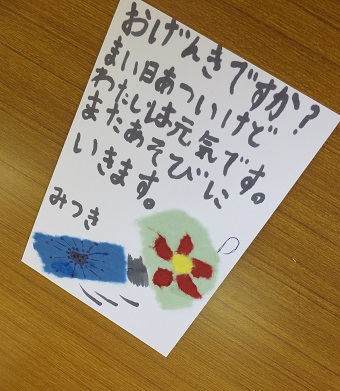 おげんきですか?
まい日あついけど
わたしは元気です。
またあそびに
いきます。
みつき